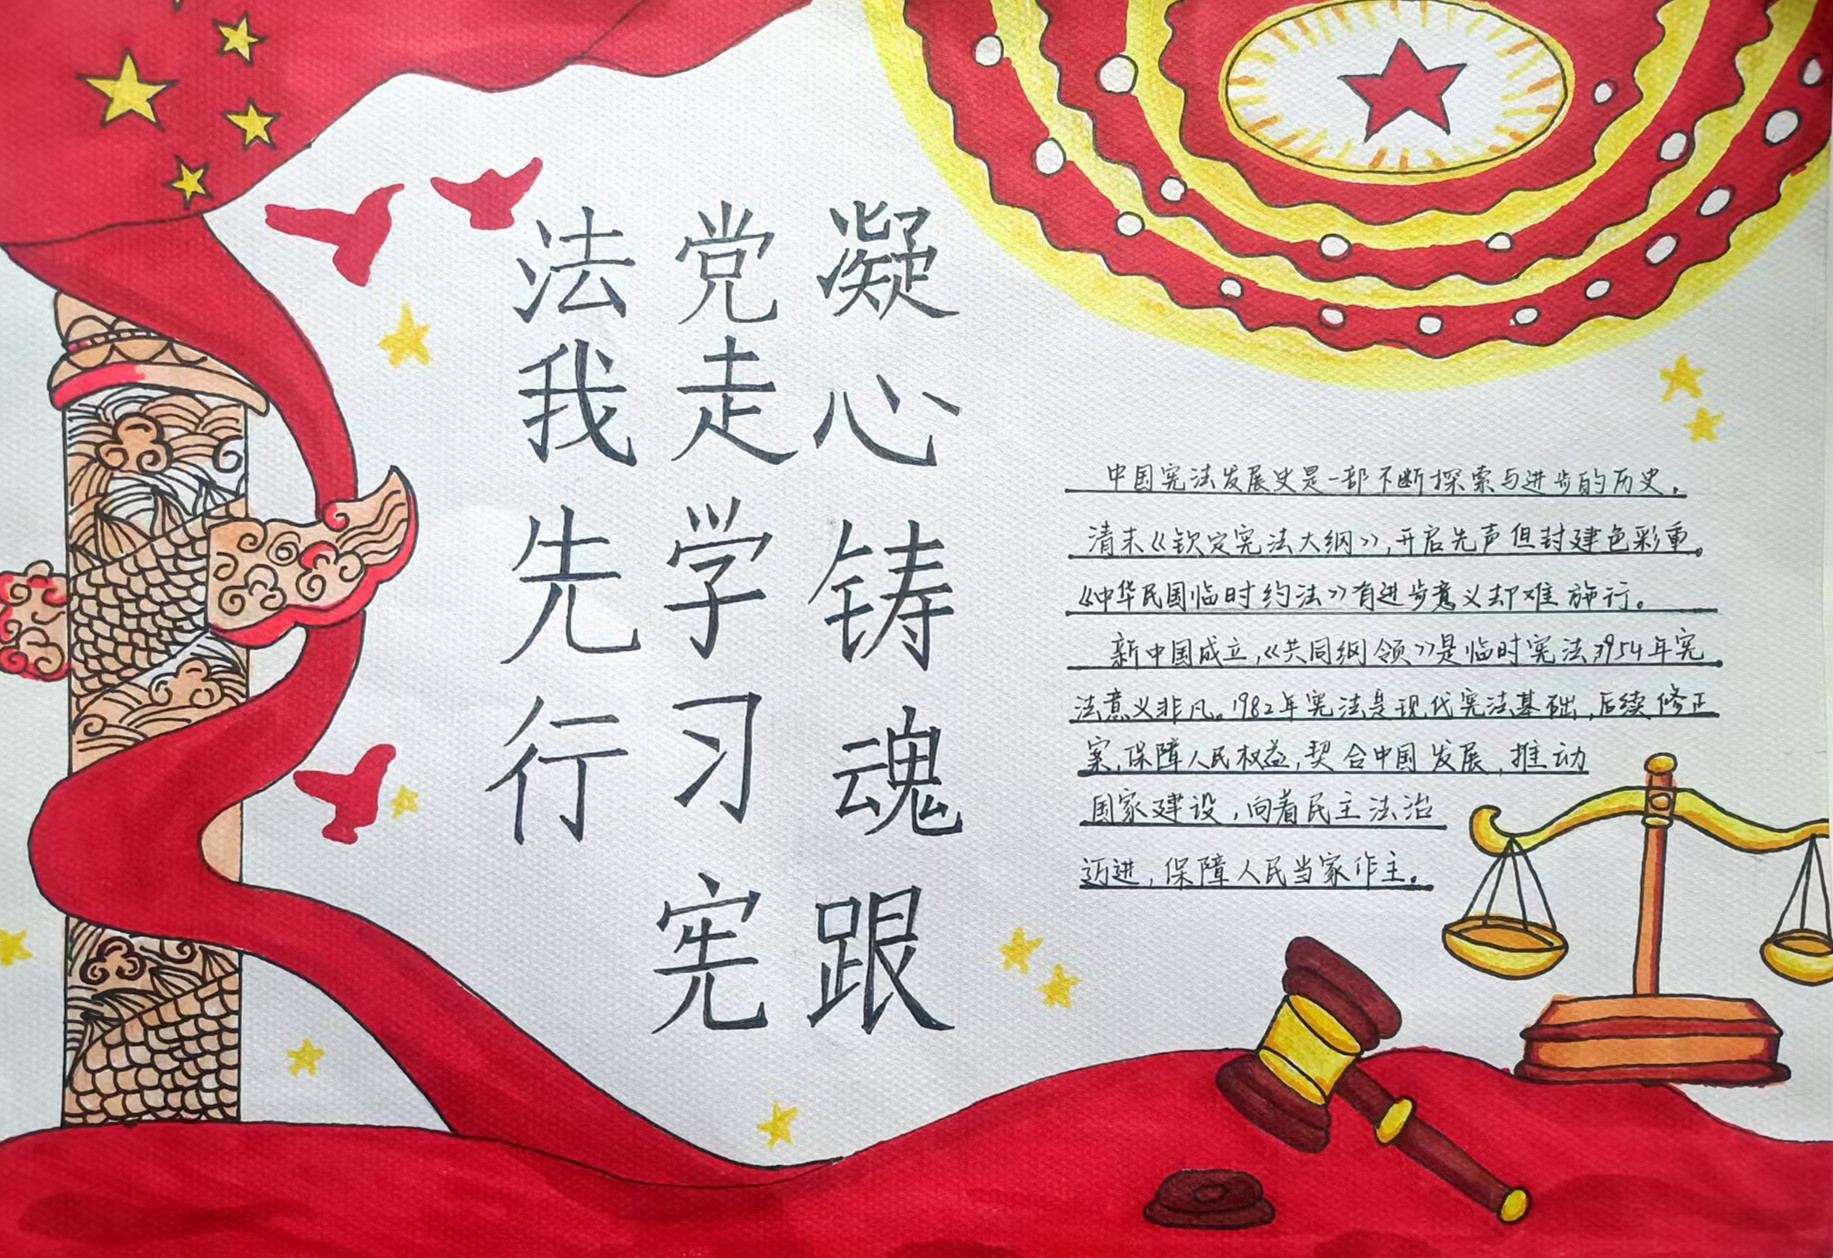 凝心铸魂跟
党走学习宪
法我先行
中国宪法发展史是一部不断探索与进步的历史，
清末《钦定宪法大纲》，开启先声但封建色彩重。
《中华民国临时约法》有进步意义却难施行。
新中国成立，《共同纲领》是临时宪法，1954年宪
法意义非凡。1982年宪法是现代宪法基础，后续修正
案，保障人民权益，契合中国发展，推动
国家建设，向着民主法治
迈进，保障人民当家作主。